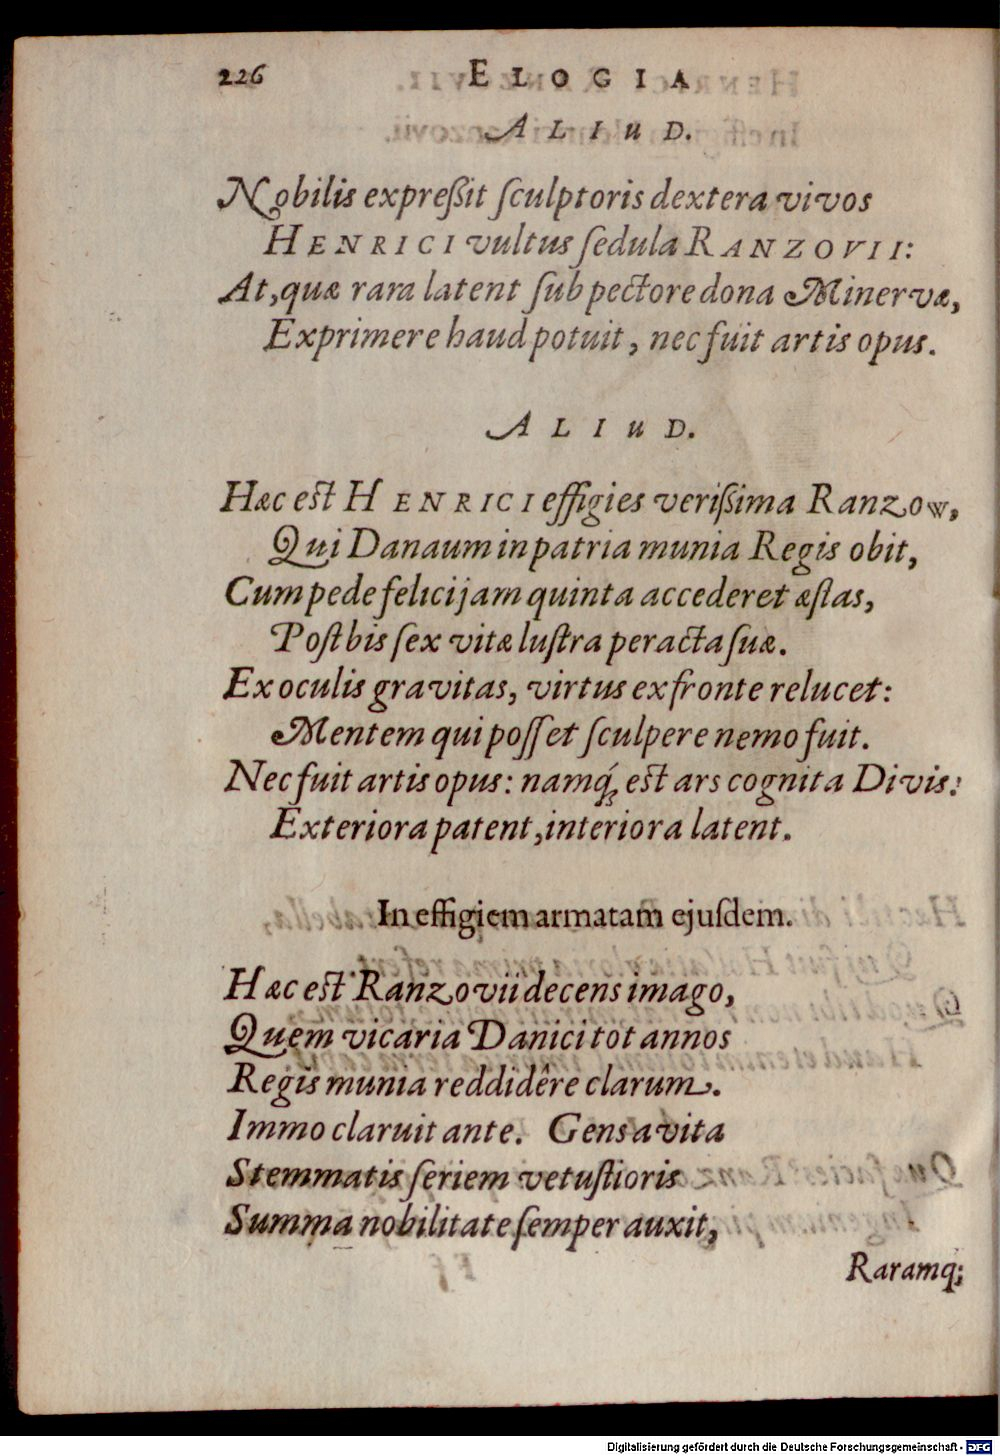 226 ELOGIA
ALIUD.
Nobilis expreßit ſculptoris dextera vivos
HENRICI vultus ſedula RANZOVII:
At, quæ rara latent ſub pectore dona Minervæ,
Exprimere haud potuit, nec fuit artis opus.
ALIUD.
Hæc eſt HENRICI effigies verißima Ranzow,
Qui Danaum in patria munia Regis obit,
Cum pede felici jam quinta accederet æſtas,
Poſt bis ſex vitæ luſtra peracta ſuæ.
Ex oculis gravitas, virtus ex fronte relucet:
Mentem qui poſſet ſculpere nemo fuit.
Nec fuit artis opus: namq́; eſt ars cognita Divis:
Exteriora patent, interiora latent.
In effigiem armatam ejuſdem.
Hæc eſt Ranzovii decens imago,
Quem vicaria Danici tot annos
Regis munia reddidêre clarum.
Immo claruit ante. Gens avita
Stemmatis ſeriem vetuſtioris
Summa nobilitate ſemper auxit,
Raramq;
Digitalisierung gefördert durch die Deutsche Forschungsgemeinschaft - DFG